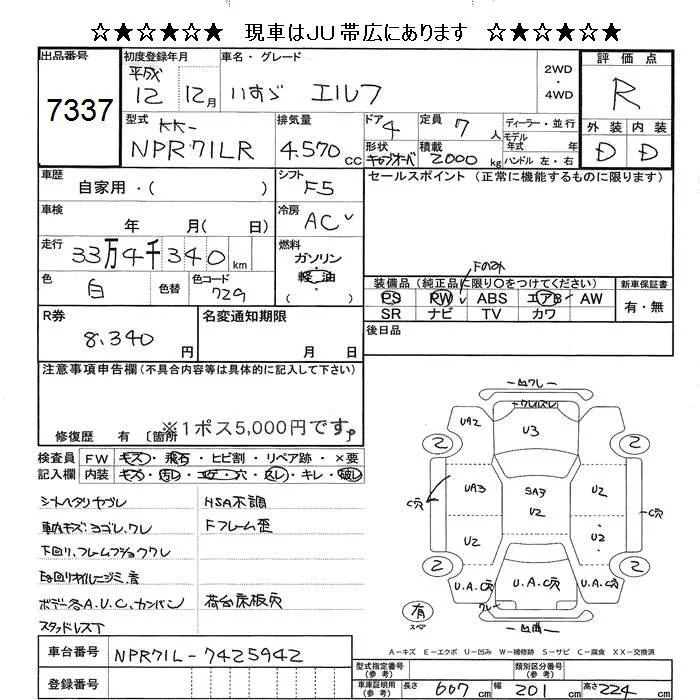 ☆★☆★☆★ 現車はJU帯広にあります ☆★☆★☆★
出品番号
7337
初度登録年月
平成
12 12月
車名・グレード
いすゞ エルフ
2WD
・
4WD
評価点
R
外装 内装
D D
型式
KK-
NPR71LR
排気量
4.570cc
ドア
4
定員
7人
ディーラー・並行
モデル
年式 年
形状
キャブオーバ
積載
2000kg
ハンドル 左・右
車歴
自家用・( )
シフト
F5
セールスポイント (正常に機能するものに限ります)
車検
年 月( 日)
冷房
AC
走行
33万4千340km
燃料
ガソリン
軽油
( )
色
白
色替
色コード
729
Fのみ
装備品(純正品に限り○をつけてください)
新車保証書
PS PW ABS エアB AW
有・無
SR ナビ TV カワ
後日品
R券
8,340円
名変通知期限
月 日
注意事項申告欄(不具合内容等は具体的に記入して下さい)
※1ポス5,000円です。
修復歴 有 〔箇所
検査員 FW キズ・飛石・ヒビ割・リペア跡・×要
記入欄 内装 キズ・汚レ・コゲ・穴・スレ・キレ・破レ
シートヘタリヤブレ
HSA不調
車内キズ、ヨゴレ、ワレ
Fフレーム歪
下回り、フレームフショクワレ
Eg回りオイルニジミ、音
ボデー各A.U.C、カンバン
荷台床板穴
スタッドレス下
車台番号
NPR71L-7425942
登録番号
凹ワレ
ワレ/ズレ
UA2
U3
2
2
C穴
UA3
SA3
U2
U2
C穴
U2
U2
2
2
U.A.C穴
U.A.C穴
U.A.C穴
ワレ
凹曲
有
スペア
A-キズ E-エクボ U-凹み W-補修跡 S-サビ C-腐食 XX-交換済
型式指定番号
(参考)
類別区分番号
(参考)
車庫証明用
(参考)
長さ 607cm 幅 201cm 高さ 224cm